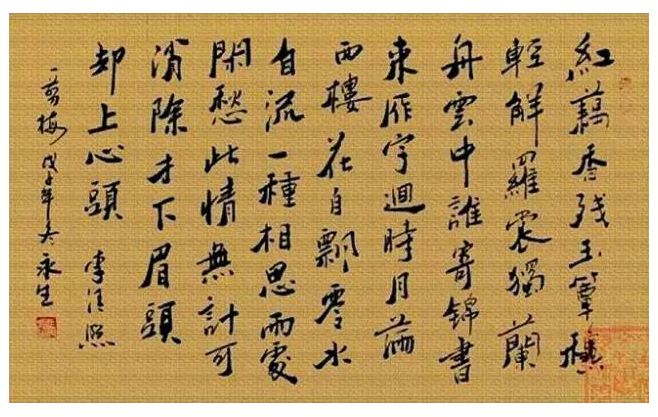 紅藕香残玉簟穐
輕解羅裳獨蘭
舟雲中誰寄錦書
來雁字迴時月滿
西樓花自飄零水
自流一種相思兩處
閑愁此情無計可
消除才下眉頭
却上心頭 李清照
一剪梅 戊子年冬永生